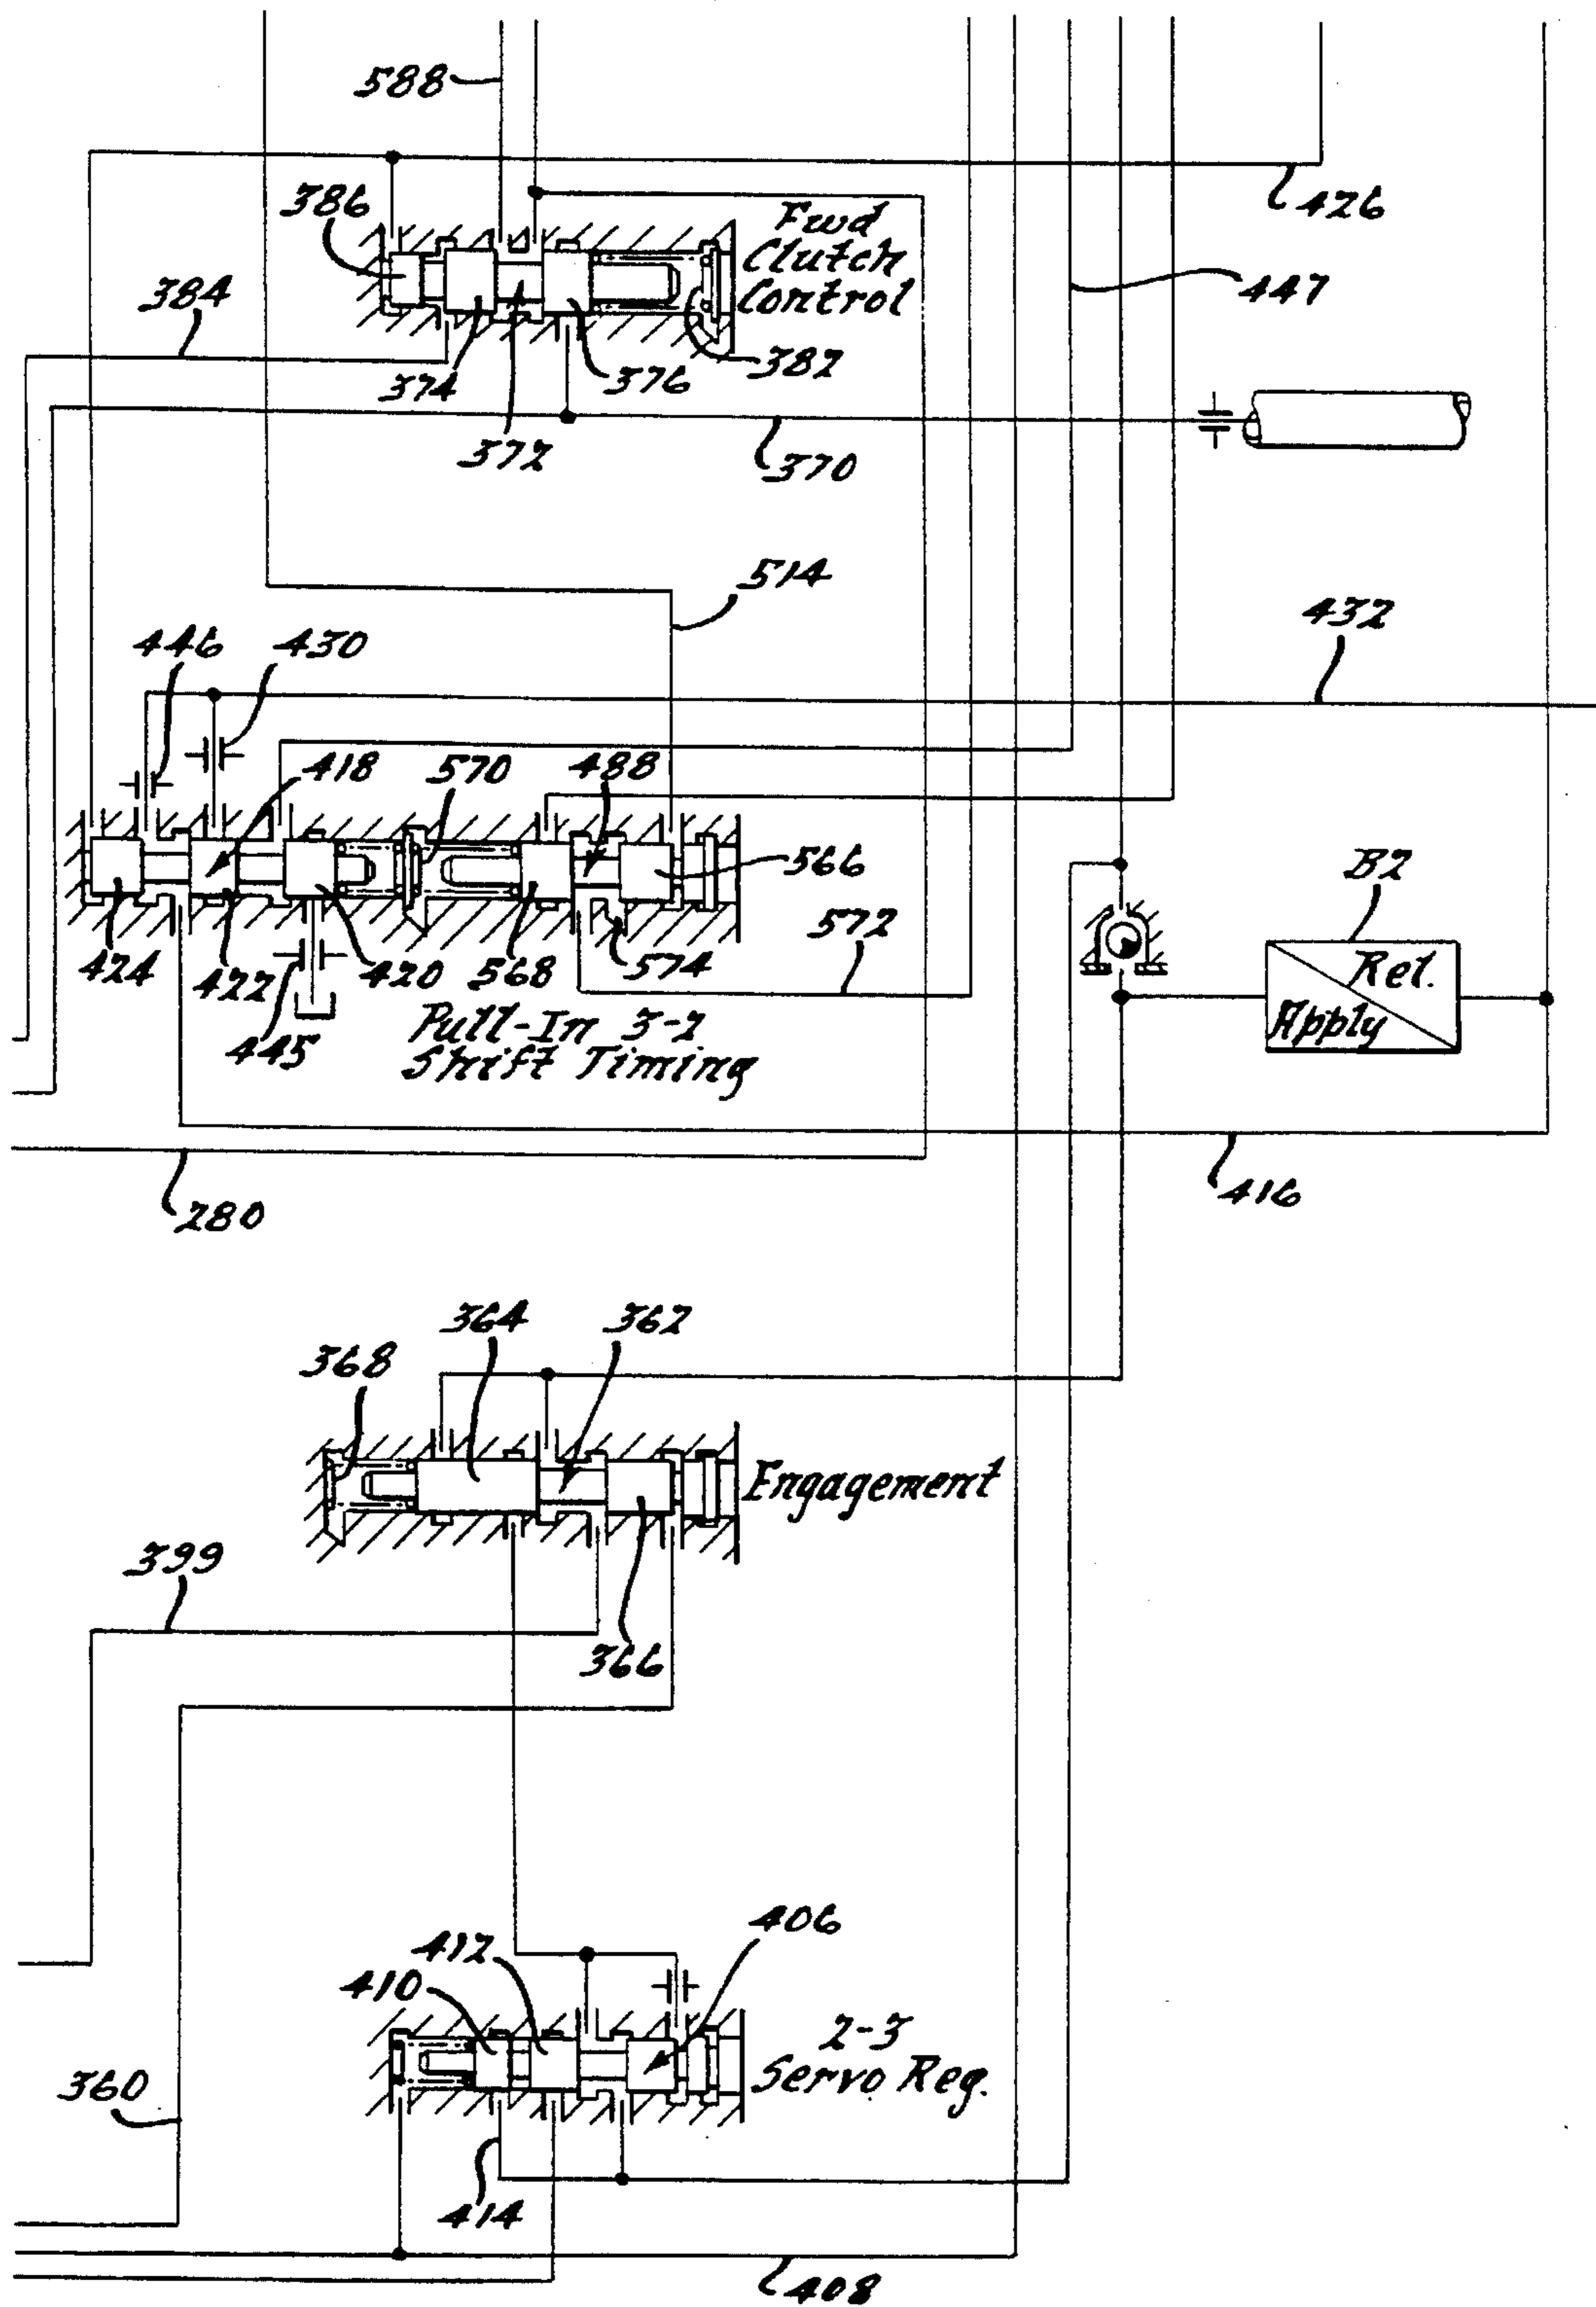 588
386
Fwd
Clutch
Control
426
384
447
374
372
376
382
370
514
432
446
430
418
570
488
566
B2
572
424
422
420
568
574
Rel.
Apply
445
Pull-In 3-2
Shift Timing
280
416
364
362
368
Engagement
399
366
406
412
410
2-3
Servo Reg.
360
414
408